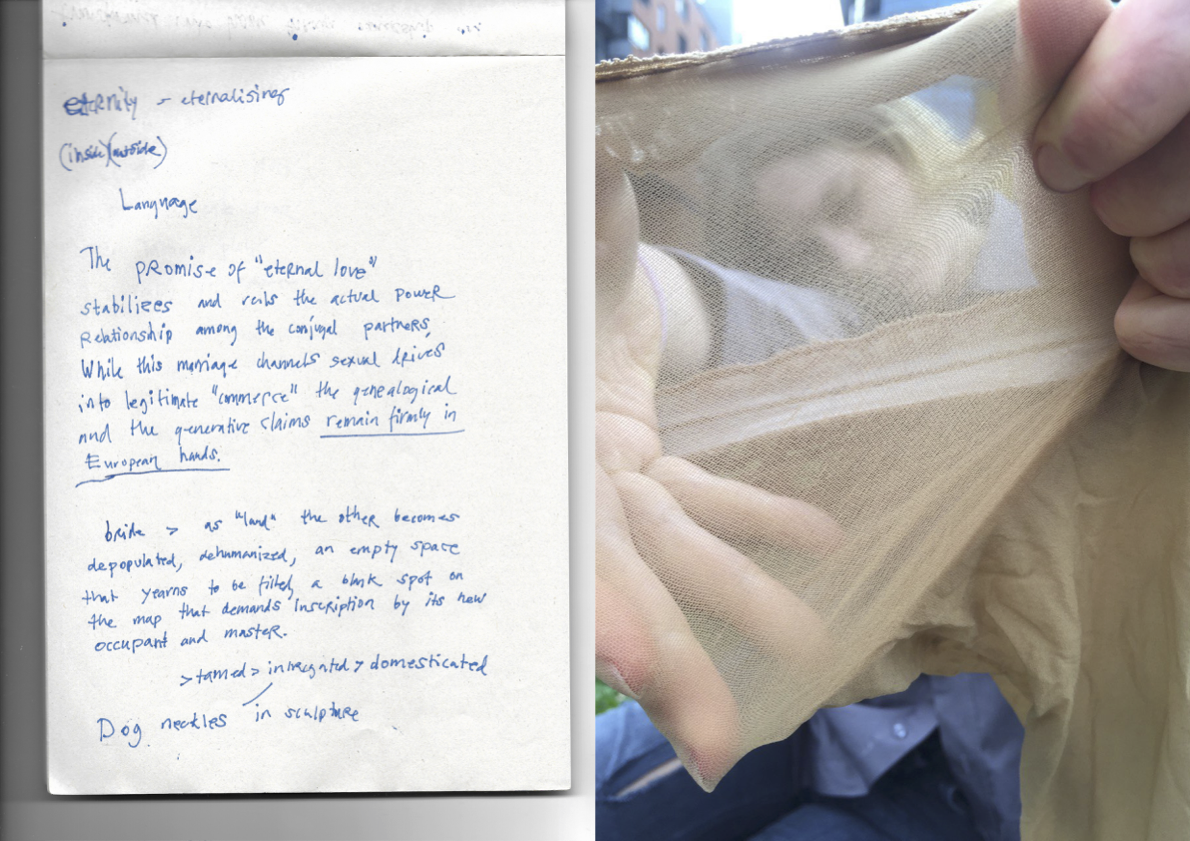 eternity - eternalising
(inside)(outside)
Language
The promise of "eternal love"
stabilizes and veils the actual power
Relationship among the conjugal partners,
While this marriage channels sexual drives
into legitimate "commerce" the genealogical
and the generative claims remain firmly in
European hands.
bride > as "land" the other becomes
depopulated, dehumanized, an empty space
that yearns to be filled, a blank spot on
the map that demands inscription by its new
occupant and master.
> tamed > integrated > domesticated
Dog neckles in sculpture